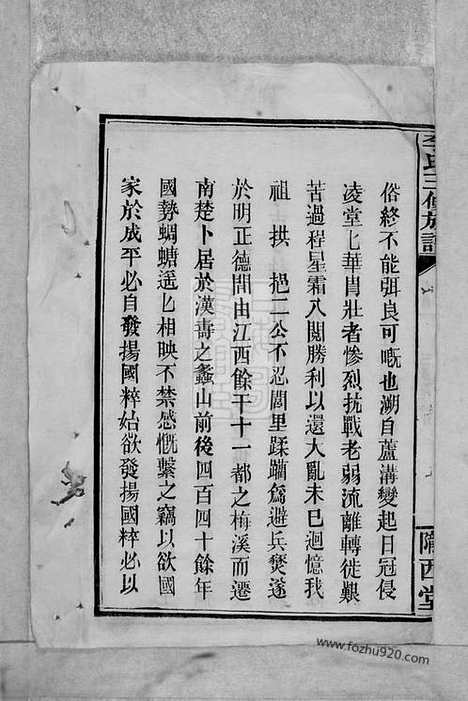 李氏三修族譜
隴西堂
俗終不能弭良可嘅也溯自蘆溝變起日冠侵
凌堂七華胄壯者慘烈抗戰老弱流離轉徙艱
苦過程星霜八閱勝利以還大亂未巳迴憶我
祖拱挹二公不忍閭里蹂躪爲避兵燹遂
於明正德間由江西餘干十一都之梅溪而遷
南楚卜居於漢壽之蠡山前後四百四十餘年
國勢蜩螗遥七相映不禁感慨繫之竊以欲國
家於成平必自發揚國粹始欲發揚國粹必以
www.fozhu920.com